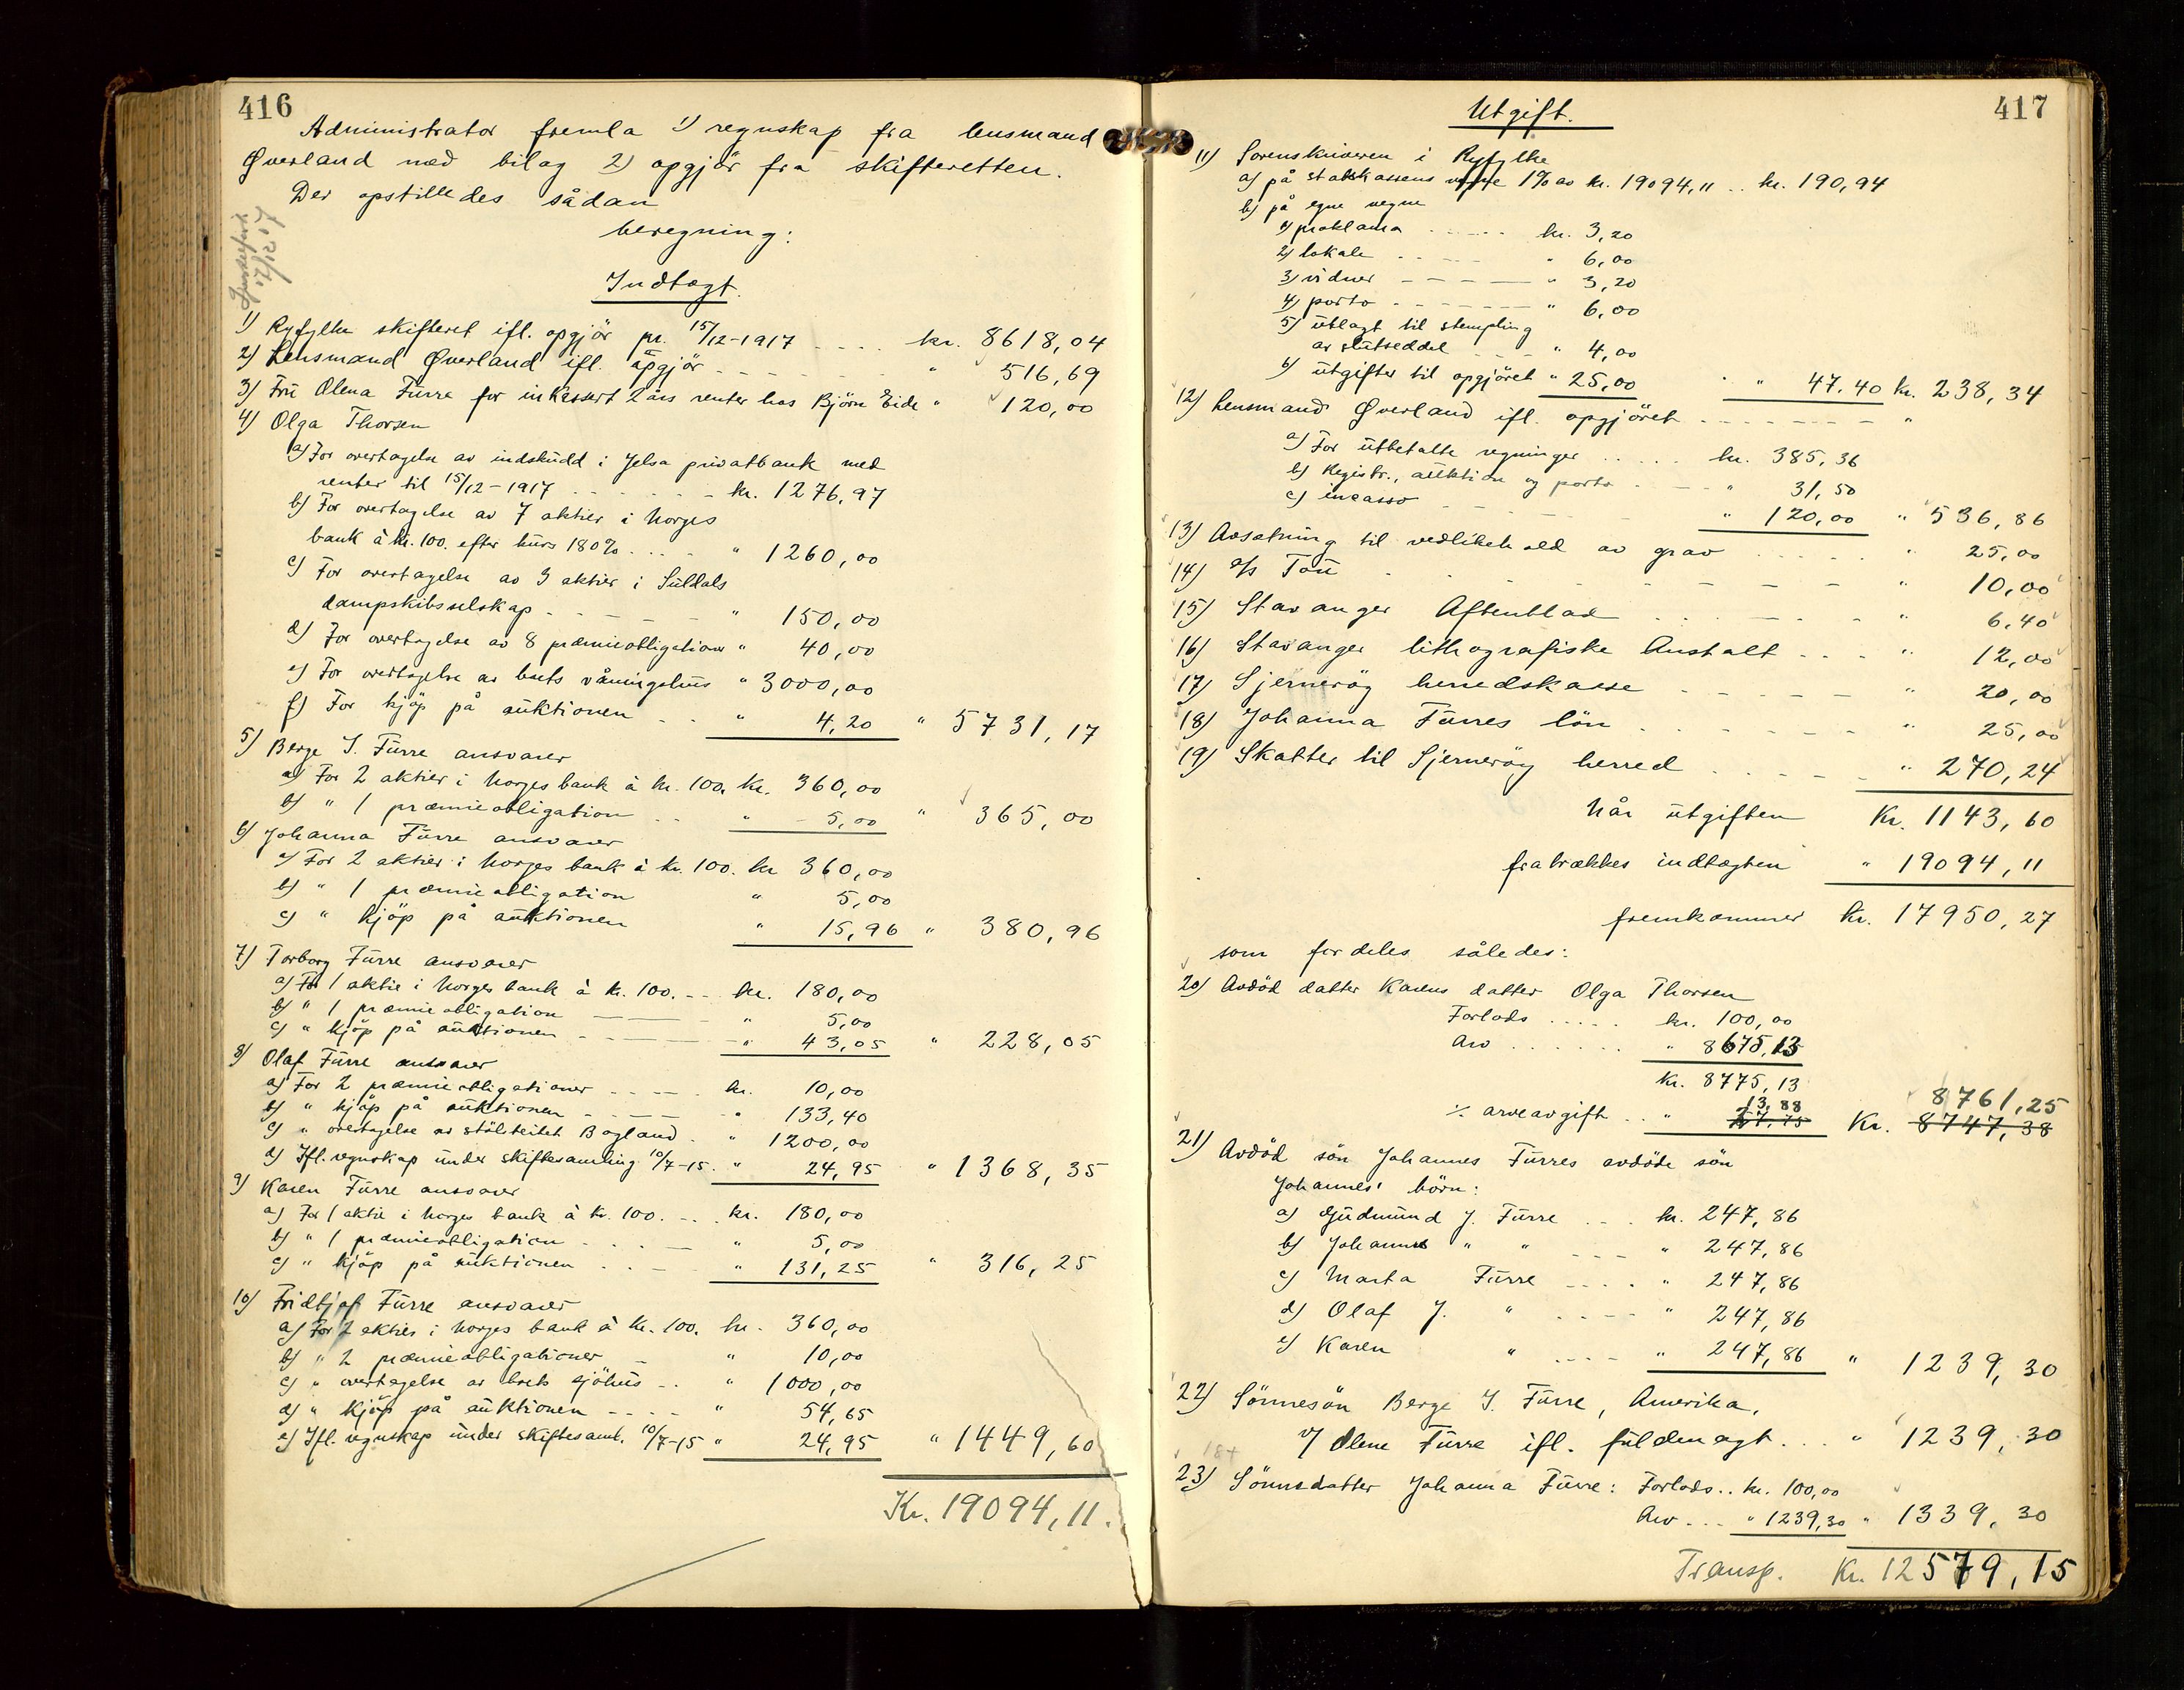 416
Administrator fremla 1) regnskap fra lensmand
Øverland med bilag 2) opgjör fra skifteretten.
Der opstilledes sådan
beregning:
17/12 17
Indtægt.
1) Ryfylke skifteret ifl. opgjör pr. 15/12-1917 .... kr. 8618,04
2) Lensmand Øverland ifl. opgjör - - - - - " 516,69
3) Frü Olena Fürre for inkassert 2 års renter hos Björn Eide " 120,00
4) Olga Thorsen
a) For overtagelse av indsküdd i Jelsa privatbank med
renter til 15/12-1917 . . . . . - - kr. 1276,97
b) For overtagelse av 7 aktier i Norges
bank à kr. 100. efter kürs 180% . . . . " 1260,00
c) For overtagelse av 3 aktier i Süldals
dampskibsselskap - - - - - " 150,00
d) For overtagelse av 8 præmieobligationer " 40,00
e) For overtagelse av boets våningshüs " 3000,00
f) For kjöp på aüktionen - . . " 4,20 " 5731,17
5) Berge J. Fürre ansvarer
a) For 2 aktier i Norges bank à kr. 100. kr. 360,00
b) " 1 præmieobligation . . " 5,00 " 365,00
6) Johanna Fürre ansvarer
a) For 2 aktier i Norges bank à kr. 100. kr 360,00
b) " 1 præmieobligation " 5,00
c) " kjöp på aüktionen " 15,96 " 380,96
7) Torborg Fürre ansvarer
a) For 1 aktie i Norges bank à kr. 100. - - kr. 180,00
b) " 1 præmieobligation - - - " 5,00
c) " kjöp på aüktionen - - - - " 43,05 " 228,05
8) Olaf Fürre ansvarer
a) For 2 præmieobligationer - - - - kr. 10,00
b) " kjöp på aüktionen - - - - " 133,40
c) " overtagelse av stölsteitet Bogland . " 1200,00
d) Ifl. regnskap ünder skiftesamling 10/7-15. " 24,95 " 1368,35
9) Karen Fürre ansvarer
a) For 1 aktie i Norges bank à kr. 100. - . . kr. 180,00
b) " 1 præmieobligation . . . - " 5,00
c) " kjöp på aüktionen . . - - " 131,25 " 316,25
10) Fridtjof Fürre ansvarer
a) For 2 aktier i Norges bank à kr. 100. kr. 360,00
b) " 2 præmieobligationer - " 10,00
c) " overtagelse av boets sjöhüs - . " 1000,00
d) " kjöp på aüktionen - - - - " 54,65
e) Ifl. regnskap ünder skiftesaml. 10/7-15 " 24,95 " 1449,60
Kr. 19094,11.
417
Utgift.
11) Sorenskriveren i Ryfylke
a) på statskassens vegne 1% av kr. 19094,11 .. kr. 190,94
b) på egne vegne
1) proklama - - - - - kr. 3,20
2) lokale - - - - " 6,00
3) vidner - - - - - " 3,20
4) porto - - - - - - " 6,00
5) ütlagt til stempling
av slütseddel - - - " 4,00
6) ütgifter til opgjöret " 25,00 . " 47.40 kr. 238,34
12) Lensmand Øverland ifl. opgjöret - - - - - - - "
a) For ütbetalte regninger . . . . . kr. 385,36
b) Registr., aüktion og porto . - - - " 31,50
c) incasso - - - - - " 120,00 " 536,86
13) Avsætning til vedlikehold av grav . . . . . " 25,00
14) a/s Toü . - - - - - " 10,00
15) Stavanger Aftenblad . . . . - . - " 6,40
16) Stavanger lithografiske Anstalt - - - . " 12,00
17) Sjernerög herredskasse - - - - - " 20,00
18) Johanna Fürres lön . . . - - - - " 25,00
19) Skatter til Sjernerög herred . . . . - - " 270,24
Når ütgiften Kr. 1143,60
fratrækkes indtægten " 19094,11
fremkommer kr. 17950,27
som fordeles således:
20) Avdöd datter Karens datter Olga Thorsen
Forlods . . . . . kr. 100,00
Arv . . . . . . . " 8675,13
Kr. 8775,13
13,88 8761,25
÷ arveavgift . . " 27,75 Kr. 8747,38
21) Avdöd sön Johannes Fürres avdöde sön
Johannes' börn:
a) Güdmünd J. Fürre . . . kr. 247,86
b) Johannes " " - - - " 247,86
c) Marta Fürre - - . . " 247,86
d) Olaf J. " . - - - - " 247,86
e) Karen " . - - - " 247,86 " 1239,30
22) Sönnesön Berge J. Fürre, Amerika,
v/ Olene Fürre ifl. füldmagt . . . " 1239,30
23) Sönnedatter Johanna Fürre: Forlods .. kr. 100,00
Arv - - . " 1239,30 " 1339,30
Transp. Kr. 12579,15